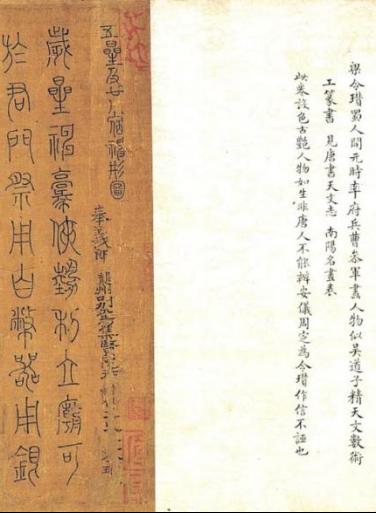 梁令瓚蜀人開元時率府兵曹參軍畫人物似吳道子精天文數術
工篆書 見唐書天文志 南陽名畫表
此卷設色古艷人物如生非唐人不能辦安儀周定為令瓚作信不誣也
五星及廿八宿神形圖
奉義郎隴州別駕集賢院待制
歲星神豪俠勢利立廟可
於君門祭用白幣器用銀